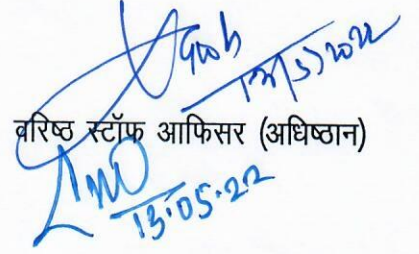 13/5/2022
वरिष्ठ स्टॉफ आफिसर (अधिष्ठान)
13.05.22